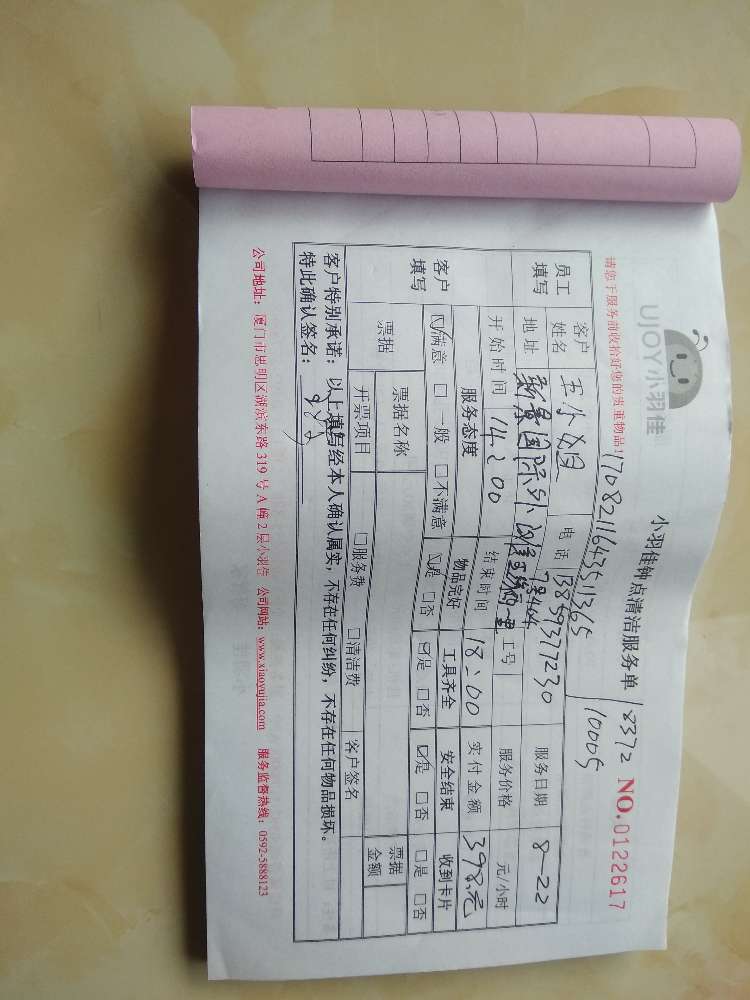 UJOY小羽佳
小羽佳钟点清洁服务单
8372
NO.0122617
请您于服务前收拾好您的贵重物品!
1708211643511365
10005
员工填写
客户姓名
王小姐
电话
13859377230
服务日期
8-22
地址
工号
服务价格
元/小时
开始时间
14:00
结束时间
18:00
实付金额
398元
客户填写
服务态度
物品完好
工具齐全
安全结束
收到卡片
☑满意 □一般 □不满意
☑是 □否
☑是 □否
☑是 □否
□是 □否
票据
票据名称
票据金额
开票项目
□服务费 □清洁费
客户签名
客户特别承诺：以上填写经本人确认属实，不存在任何纠纷，不存在任何物品损坏。
特此确认签名：
公司地址：厦门市思明区湖滨东路 319 号 A 幢 2 层小羽佳 公司网站：www.xiaoyujia.com 服务监督热线：0592-5888123